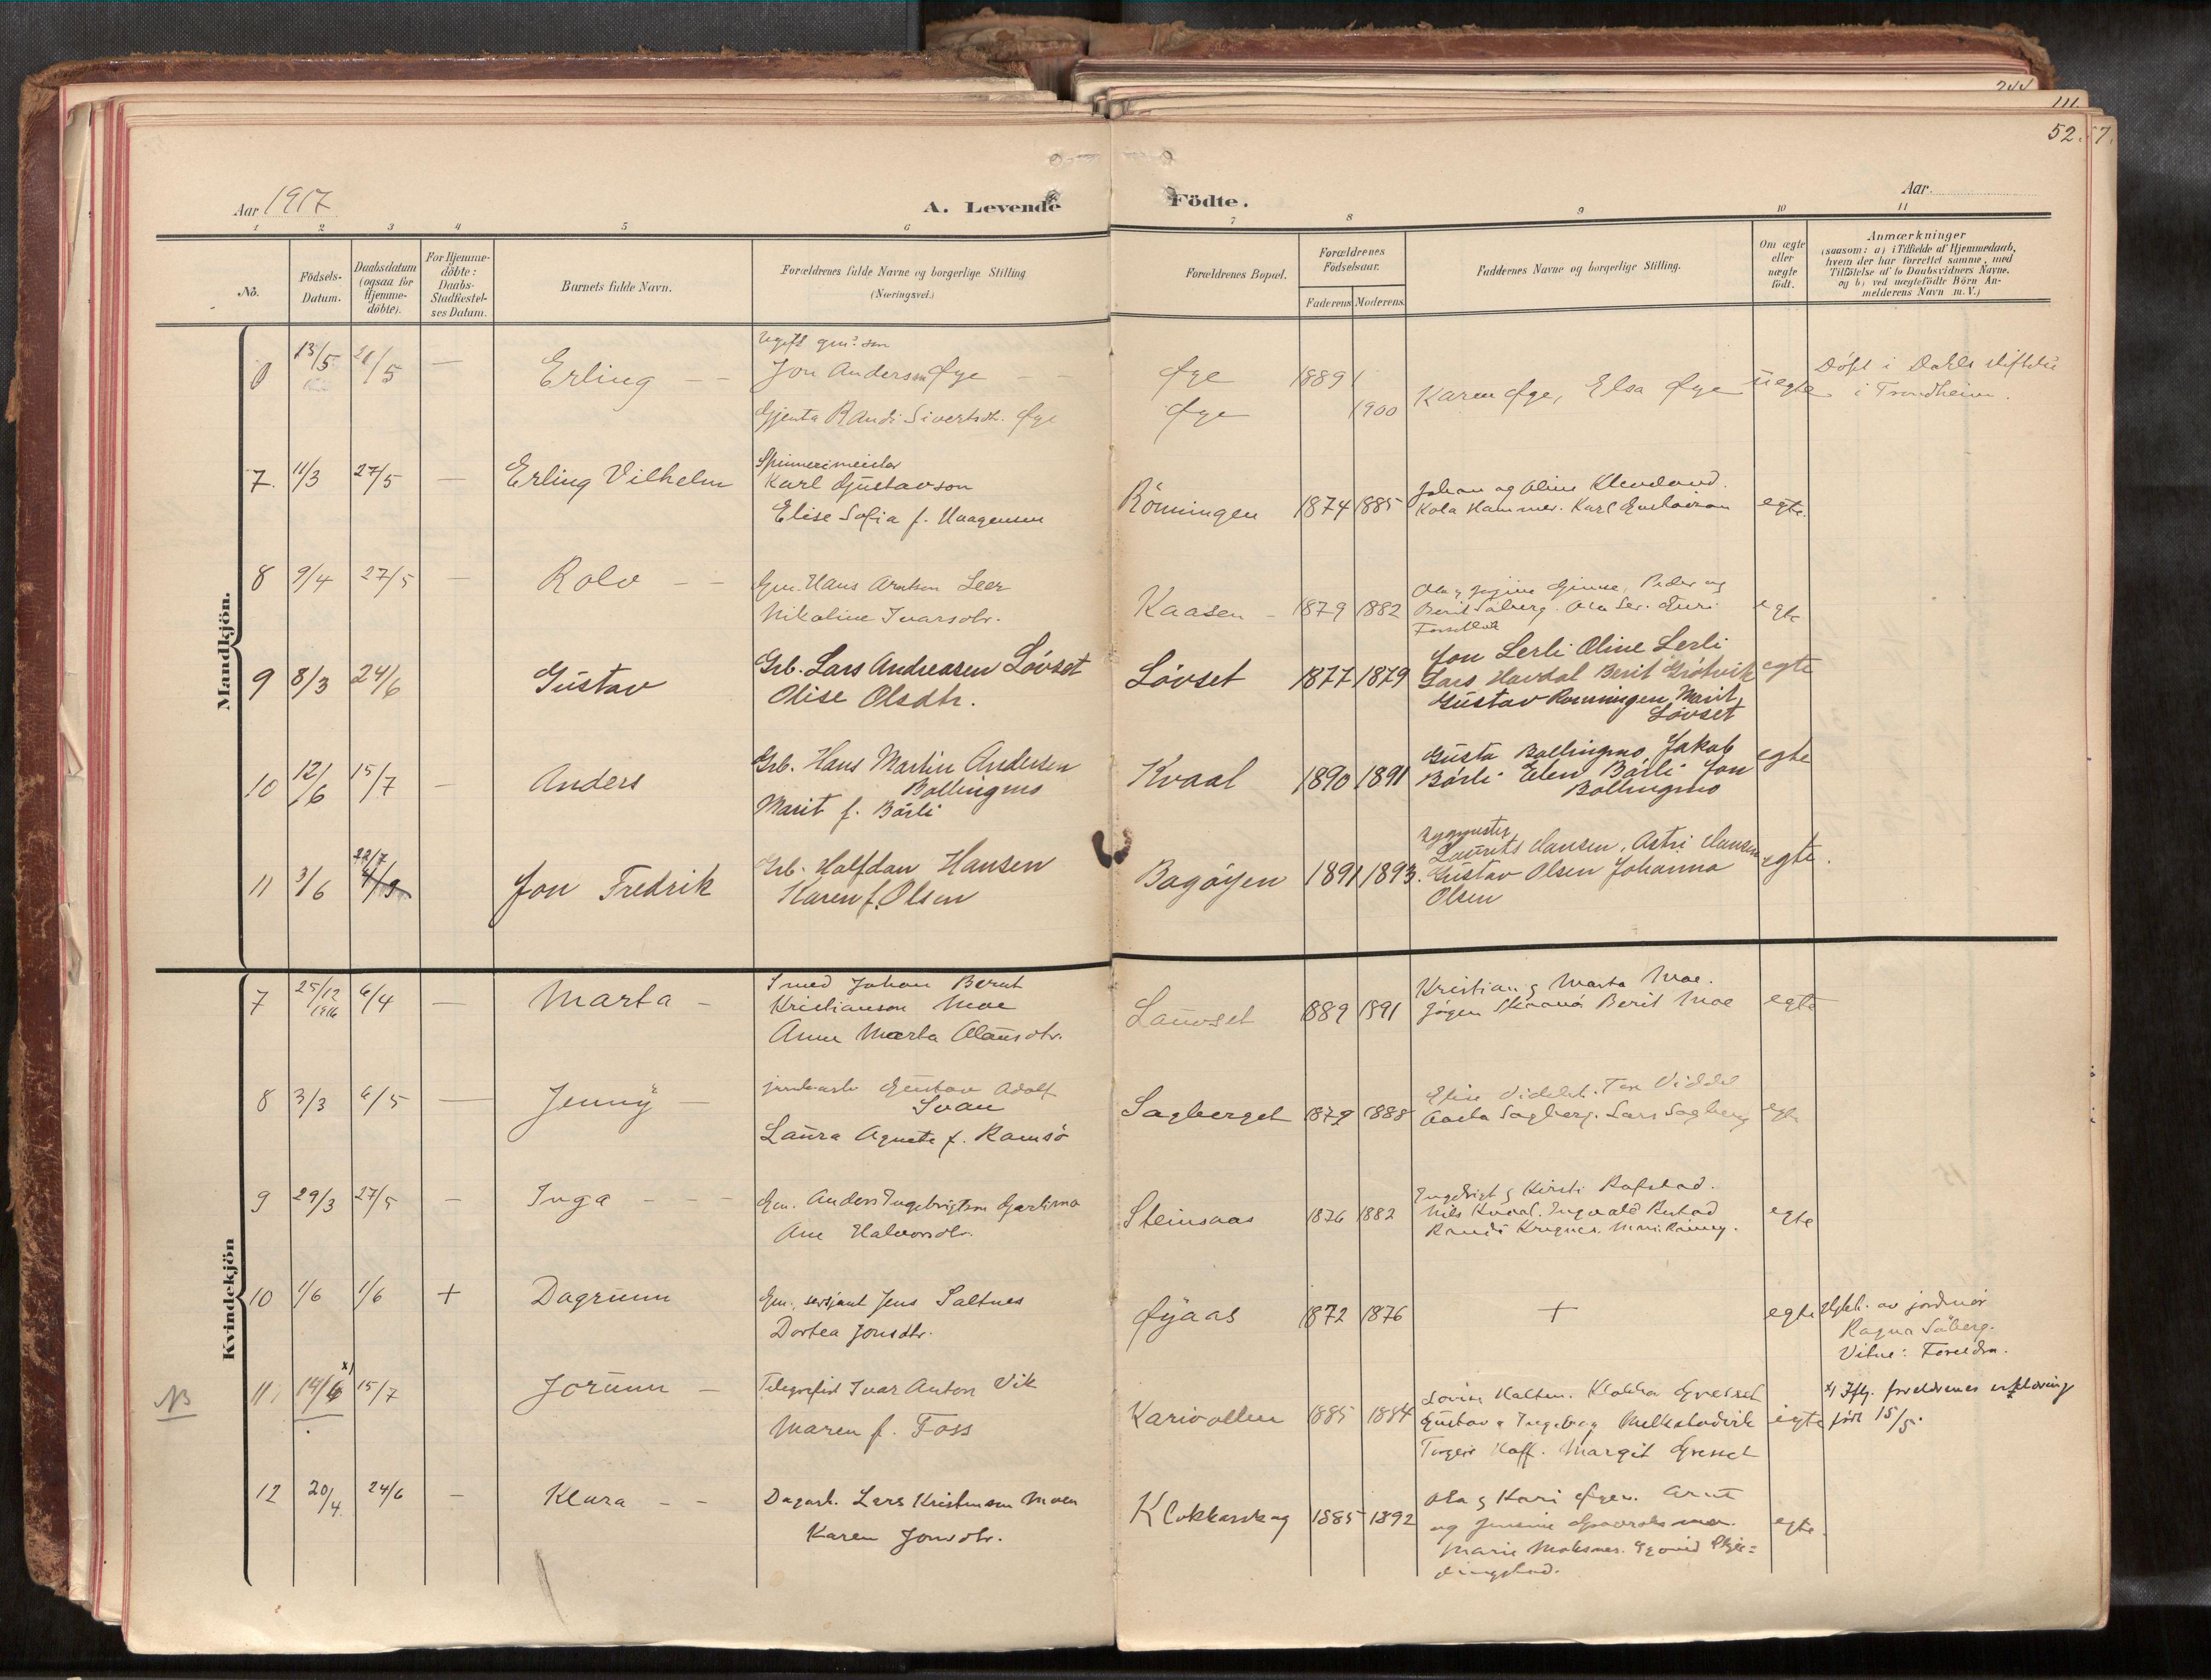 244
111.
52. 57.
Aar 1917
A. Levende Födte.
Aar
1 2 3 4 5 6 7 8 9 10 11
No.
Födsels-
Datum.
Daabsdatum
(ogsaa for
Hjemme-
döbte).
For Hjemme-
döbte:
Daabs-
Stadfæstel-
ses Datum.
Barnets fulde Navn.
Forældrenes fulde Navne og borgerlige Stilling
(Næringsvei.)
Forældrenes Bopæl.
Forældrenes
Födselsaar.
Faderens Moderens
Faddernes Navne og borgerlige Stilling.
Om ægte
eller
uægte
födt.
Anmærkninger
(saasom: a) i Tilfælde af Hjemmedaab,
hvem der har forrettet samme, med
Tilföielse af to Daabsvidners Navne.
og b) ved uægtefödte Börn An-
melderens Navn m. V.)
Mandkjön.
13/5 20/5 — Erling — —
Ugift gm.
Jon Anderssen Øye — —
Gjenta Randi Sivertsdtr. Øye
Øye 1889
Øye 1900
Karen Øye, Elsa Øye uegte
Døpt i Dahls stiftelse
i Trondheim.
7. 11/3 27/5 — Erling Vilhelm
Spinnerimester
Karl Gustavson
Elise Sofia f. Haagensen
Rönningen 1874 1885
Johan og Oline Klevland.
Kola Hammer. Karl Gustavson egte.
8 9/4 27/5 — Rolv — —
Gm. Hans Arntsen Leer
Nikoline Ivarsdtr.
Kaasen — 1879 1882
Ola g Jørgine Gimse, Peder og
Berit Saberg. Ola Ler. Guri
egte
9 8/3 24/6 Gustav
Grb. Lars Andreasen Lövset
Olise Olsdtr.
Lövset 1877 1879
Jon Lerli Oline Lerli
Lars Havdal Berit Grötvik egte
Gustav Rönningen Marit
Lövset
10 12/6 15/7 — Anders
Grb. Hans Martin Andersen
Bollingmo
Marit f. Börli
Kvaal 1890 1891
Gusta Bollingmo Jakob
Börli Elen Börli Jon
Bollingmo
egte
11 3/6 22/7 Jon Fredrik
Grb. Halfdan Hansen
Karen f. Olsen
Bagöyen 1891 1893.
Laurits Hansen, Astri Hansen
Gustav Olsen Johanna
Olsen
egte.
Kvindekjön
7 25/12 1916 6/4 — Marta —
Smed Johan Bernt
Kristianson Moe
Anne Marta Olausdtr.
Lauvset 1889 1891
Kristian g Marta Moe.
Jörgen Skaanö Berit Moe
egte
8 3/3 6/5 — Jenny —
Gustav Adolf
Svan
Laura Agnete f. Ramsö
Sagberget 1879 1888
Elise Viddal. Tore Viddal
Aasta Sagberg. Lars Sagberg egte
9 29/3 27/5 — Inga — — —
Gm. Anders Ingebrigtsen Gjærtsmo
Ane Halvorsdtr.
Steinsaas 1876 1882
Ingebrigt g Kirsti Rofstad.
Nils Kvaal. Ingvald Rustad
egte
10 1/6 1/6 + Dagrunn
Gm., sersjant Jens Saltnes
Dortea Jonsdtr.
Øyaas 1872 1876 + egte
Hjdb. av jordmor
Ragna Søberg.
Vitne: Foreldra.
NB
11 14/6 x) 15/7 Jorunn —
Telegrafist Ivar Anton Vik
Maren f. Foss
Karivollen 1885 1884
Klokker Gresset
Gustav g Ingeborg Melkstadvik egte
Margit Gresset
x) Iflg. foreldrenes erklæring
født 15/5.
12 20/4 24/6 — Klara — —
Dagarb. Lars Kristensen Moen
Karen Jonsdtr.
Klokkerskag 1885 1892
Ola g Kari Øyen. Arnt
og
Marie Moksnes. Eyvind
egte.